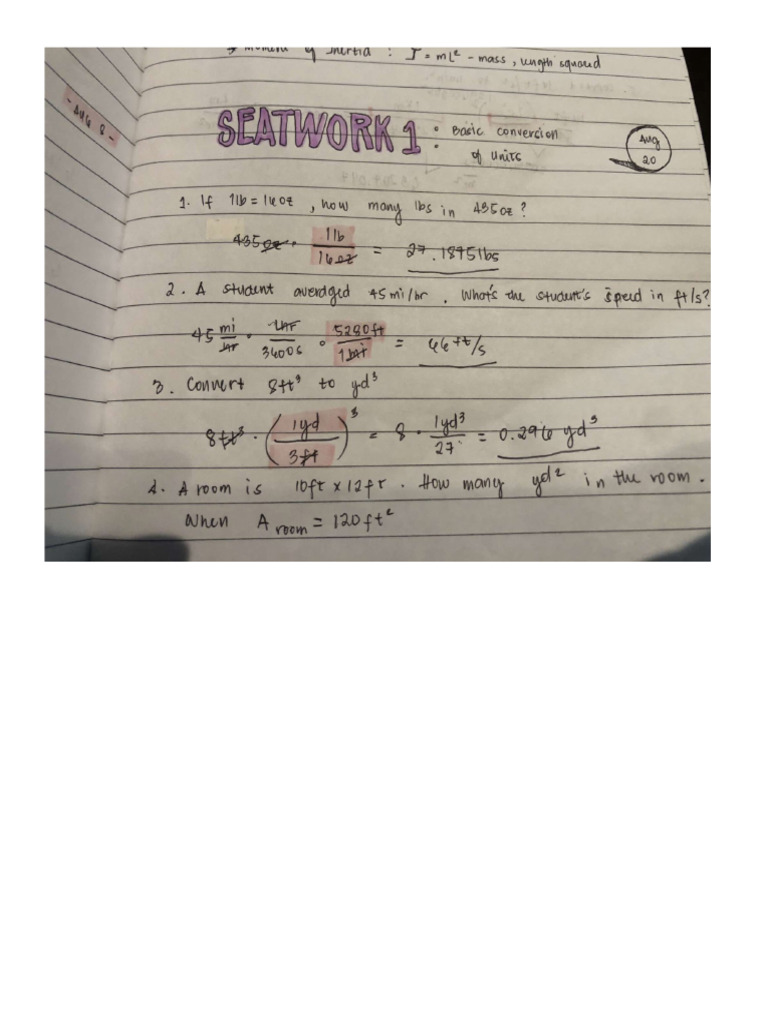 → Moment of Inertia : I = mL² - mass, length squared
- AUG 8 -
SEATWORK 1 : Basic conversion
of units
Aug
20
1. If 1lb = 16oz , how many lbs in 435oz ?
435oz · 1lb/16oz = 27.1875lbs
2. A student averaged 45mi/hr . What's the student's speed in ft/s?
45 mi/hr · 1hr/3600s · 5280ft/1mi = 66ft/s
3. Convert 8ft³ to yd³
8ft³ · (1yd/3ft)³ = 8 · 1yd³/27 = 0.296 yd³
4. A room is 10ft x 12ft . How many yd² in the room .
When A room = 120ft²